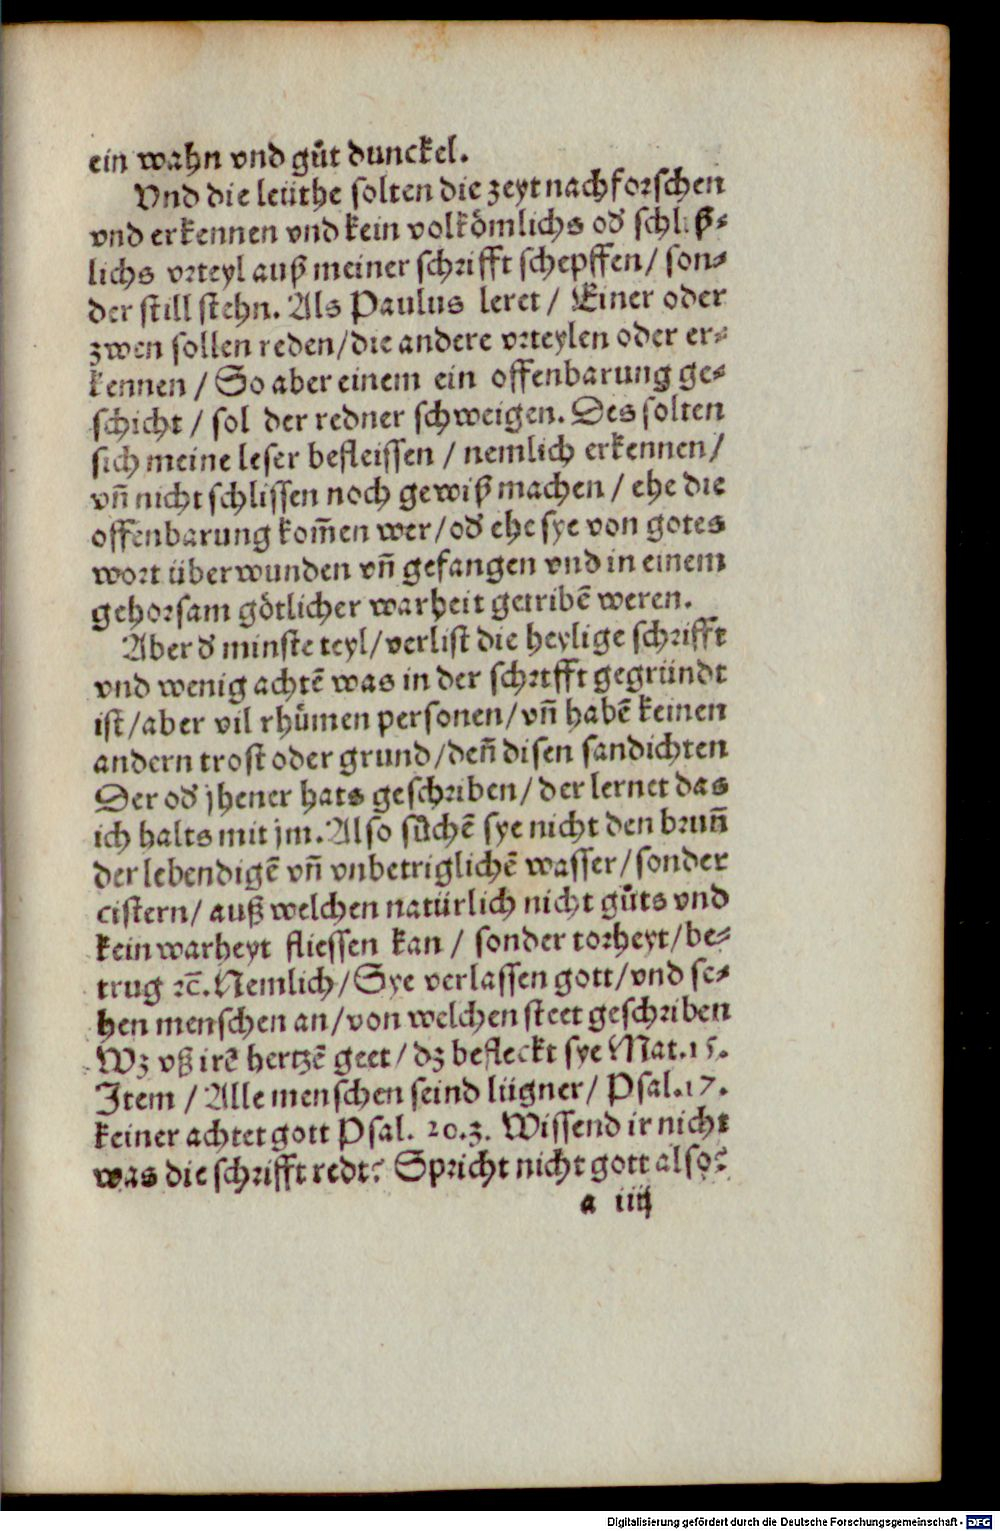 ein wahn vnd gůt dunckel.
Vnd die leüthe solten die zeyt nachforschen
vnd erkennen vnd kein volkömlichs od̕ schliß⸗
lichs vrteyl auß meiner schrifft schepffen/ son⸗
der still stehn. Als Paulus leret / Einer oder
zwen sollen reden/die andere vrteylen oder er⸗
kennen / So aber einem ein offenbarung ge⸗
schicht / sol der redner schweigen. Des solten
sich meine leser befleissen / nemlich erkennen/
vñ nicht schlissen noch gewiß machen / ehe die
offenbarung kom̃en wer/od̕ ehe sye von gotes
wort überwunden vñ gefangen vnd in einem
gehorsam götlicher warheit getribẽ weren.
Aber d̕ minste teyl/verlist die heylige schrifft
vnd wenig achtẽ was in der schrifft gegründt
ist/aber vil rhůmen personen/vñ habẽ keinen
andern trost oder grund/deñ disen sandichten
Der od̕ jhener hats geschriben/der lernet das
ich halts mit jm. Also sůchẽ sye nicht den bruñ
der lebendigẽ vñ vnbetriglichẽ wasser/sonder
cistern/ auß welchen natürlich nicht gůts vnd
kein warheyt fliessen kan / sonder torheyt/be⸗
trug ꝛc̃. Nemlich/Sye verlassen gott/vnd se⸗
hen menschen an/von welchen steet geschriben
Wz vß irẽ hertzẽ geet/dz befleckt sye Mat.15.
Item / Alle menschen seind lügner/ Psal.17.
keiner achtet gott Psal. 20.3. Wissend ir nicht
was die schrifft redt? Spricht nicht gott also?
a iiij
Digitalisierung gefördert durch die Deutsche Forschungsgemeinschaft - DFG